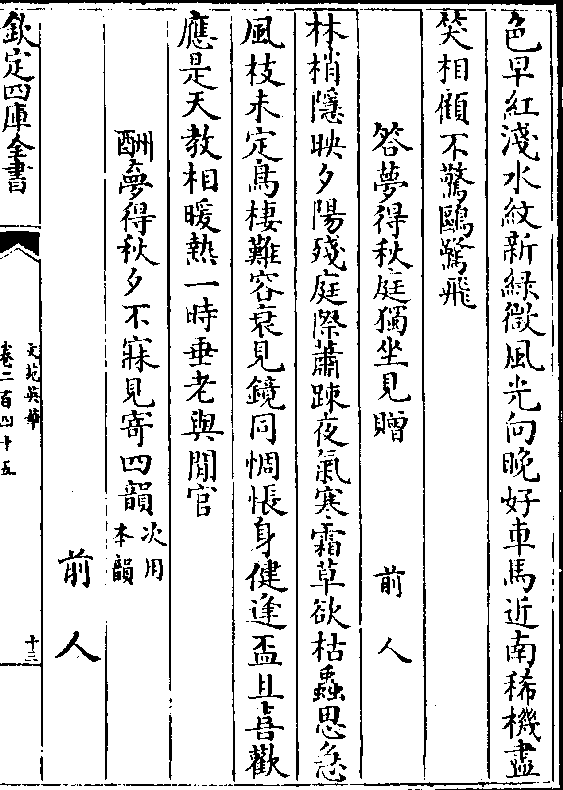 色早紅淺水紋新緑微風光向晚好車馬近南稀機盡
笑相顧不驚鷗鷺飛
答夢得秋庭獨坐見贈 前人
林梢隱映夕陽殘庭際蕭踈夜氣寒霜草欲枯蟲思急
風枝未定鳥棲難容衰見鏡同惆悵身健逢盃且喜歡
應是天教相暖熱一時垂老與閒官
酬夢得秋夕不寐見寄四韻次用本韻
前人
欽定四庫全書
文苑英華
卷二百四十五
十三